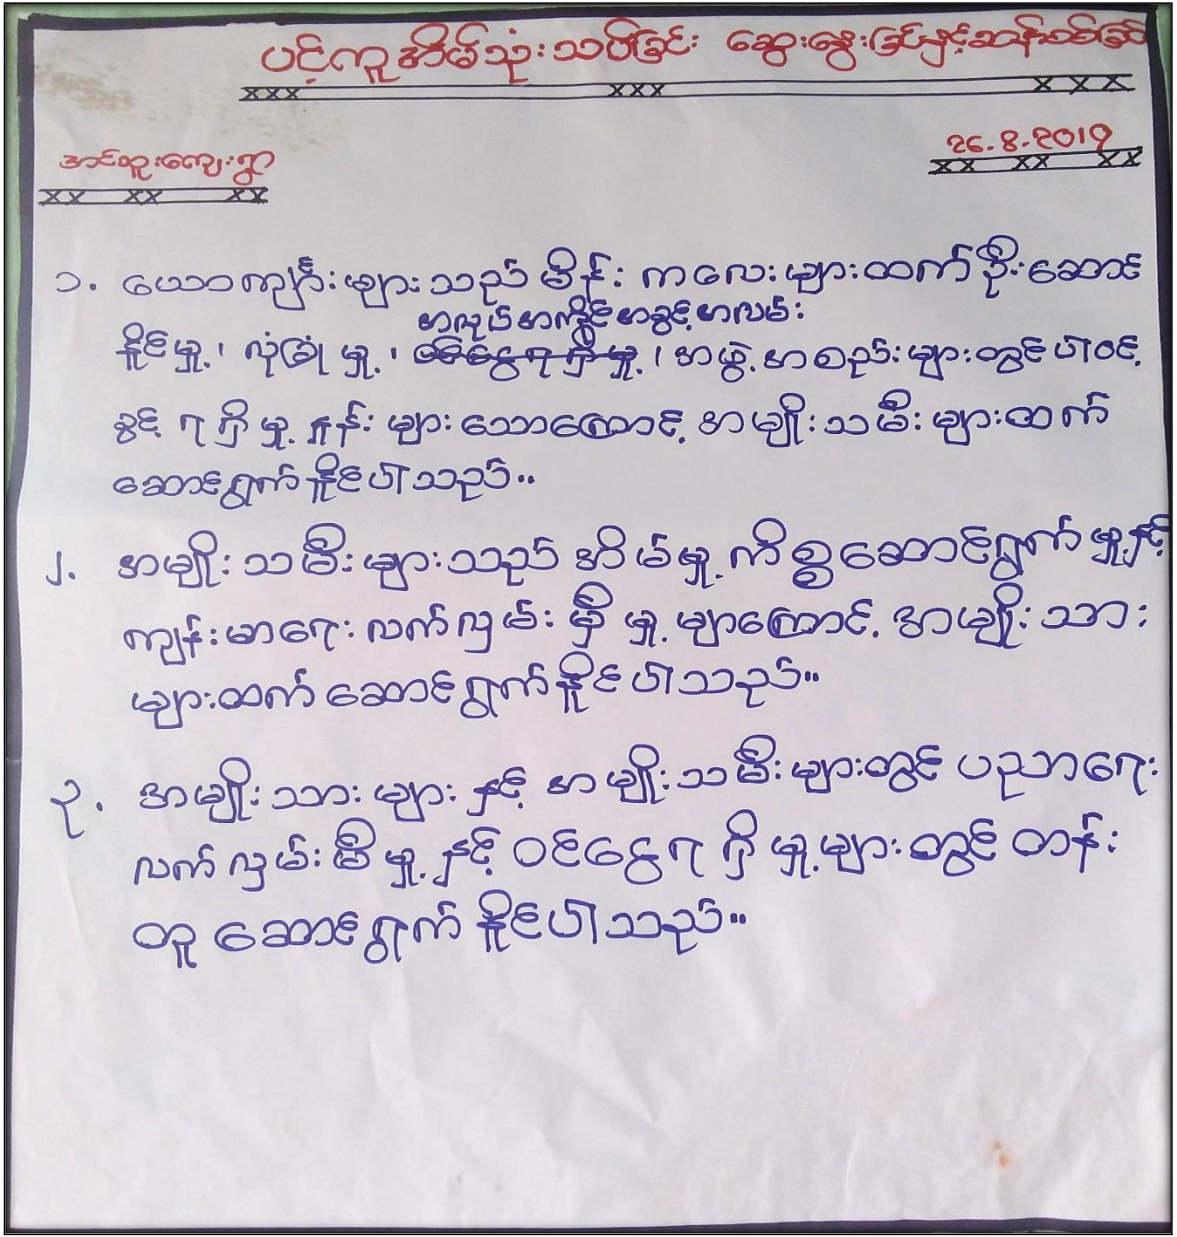 ပင့်ကူအိမ်သုံးသပ်ခြင်း ဆွေးနွေးခြင်းနှင့်ဆန်းစစ်ခြင်း
xxx xxx xxx
အင်ထူးကျေးရွာ
26.8.2019
xx xx xx
xx xx xx
၁. ယောကျာ်းများသည် မိန်းကလေးများထက် ဦးဆောင်
အလုပ်အကိုင်အခွင့်အလမ်း
နိုင်မှု့၊ လုံခြုံမှု့၊ ဝင်ငွေရရှိမှု့၊ အဖွဲ့အစည်းများတွင်ပါဝင့်
ခွင့်ရရှိမှု့နှုန်းများသောကြောင့် အမျိုးသမီးများထက်
ဆောင်ရွက်နိုင်ပါသည်။
၂. အမျိုးသမီးများသည် အိမ်မှု့ကိစ္စဆောင်ရွက်မှု့နှင့်
ကျန်းမာရေးလက်လှမ်းမှီမှု့များကြောင့် အမျိုးသား
များထက်ဆောင်ရွက်နိုင်ပါသည်။
၃. အမျိုးသားများနှင့် အမျိုးသမီးများတွင် ပညာရေး
လက်လှမ်းမီမှု့နှင့် ဝင်ငွေရရှိမှု့များတွင် တန်း
တူ ဆောင်ရွက်နိုင်ပါသည်။